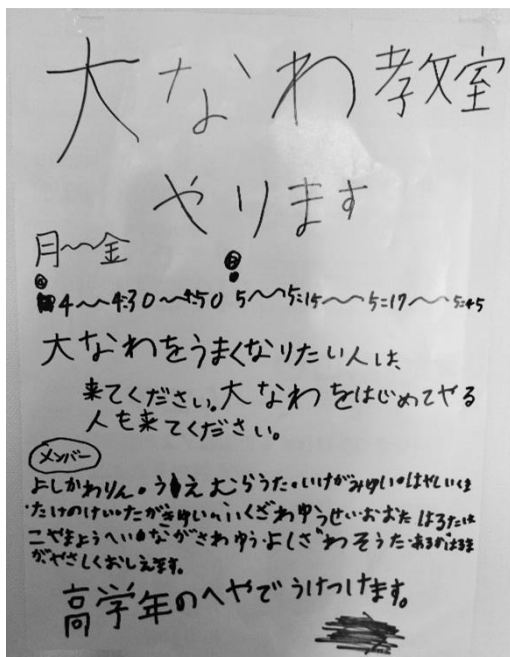 大なわ教室
やります
月〜金
4〜4:30〜4:50 5〜5:15〜5:17〜5:45
大なわをうまくなりたい人は、
来てください。大なわをはじめてやる
人も来てください。
メンバー
よしかわりん・うえむらうた・いけがみゆい・はやし
たけのけい・たがきゆい・ふくざわゆうせい・おおた はるた
こやまようへい・ながさわゆう・よしざわそうた・
がやさしくおしえます。
高学年のへやでうけつけます。